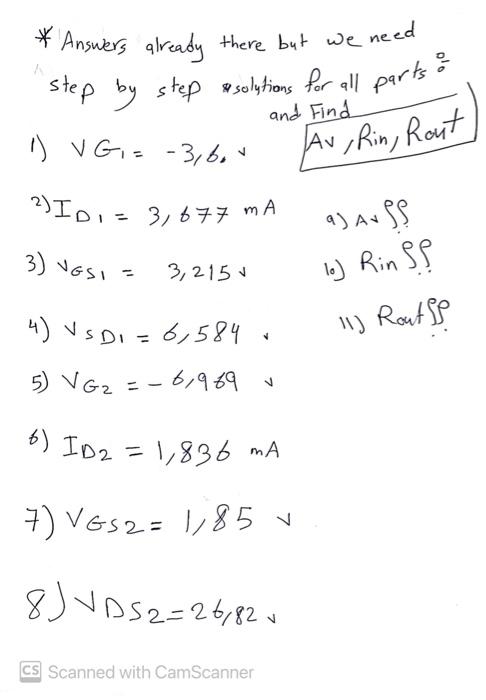 * Answers already there but we need
step by step solutions for all parts :
and Find
Av, Rin, Rout
1) VG1 = -3,6. v
2) ID1 = 3,677 mA
3) VGS1 = 3,215 v
4) VSD1 = 6,584 v
5) VG2 = -6,969 v
6) ID2 = 1,836 mA
7) VGS2 = 1,85 v
8) VDS2 = 26,82 v
9) Av ??
10) Rin ??
11) Rout ??
CS Scanned with CamScanner